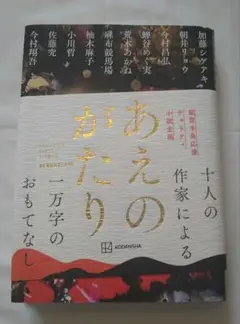 加藤シゲアキ
朝井リョウ
今村昌弘
蝉谷めぐ実
荒木あかね
麻布競馬場
柚木麻子
小川哲
佐藤究
今村翔吾
能登半島応援
チャリティ
小説企画
あえの
がたり
十人の
作家による
一万字の
おもてなし
KODANSHA